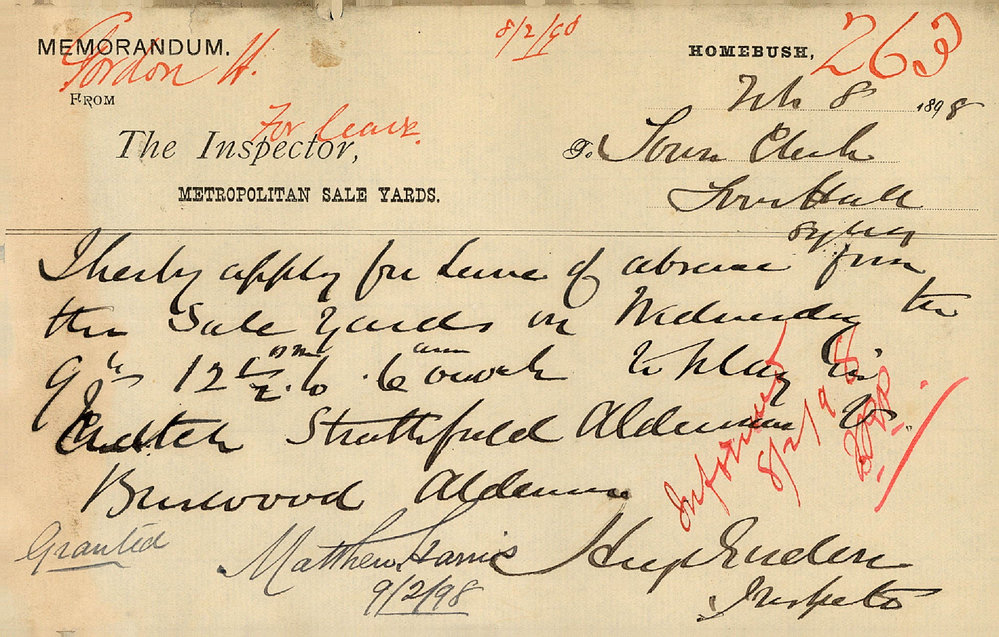 MEMORANDUM.
Gordon H.
8/2/98
HOMEBUSH,
263
FROM
Feb 8 1898
For leave.
The Inspector,
To Town Clerk
METROPOLITAN SALE YARDS.
Town Hall
Sydney
I herby apply for Leave of absence from
the Sale Yards on Wednesday the
9th 12½ pm to 6 am to play in
Match Strathfield Aldermen V.
Burwood Aldermen
Informed
8/2/98
Granted
Matthew Harris
9/2/98
Hugh Gordon
Inspector